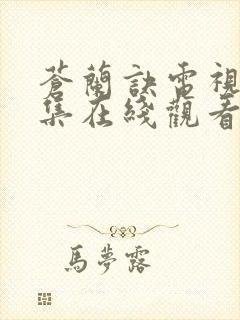 蒼蘭訣電視
集在綫觀看
馬夢露